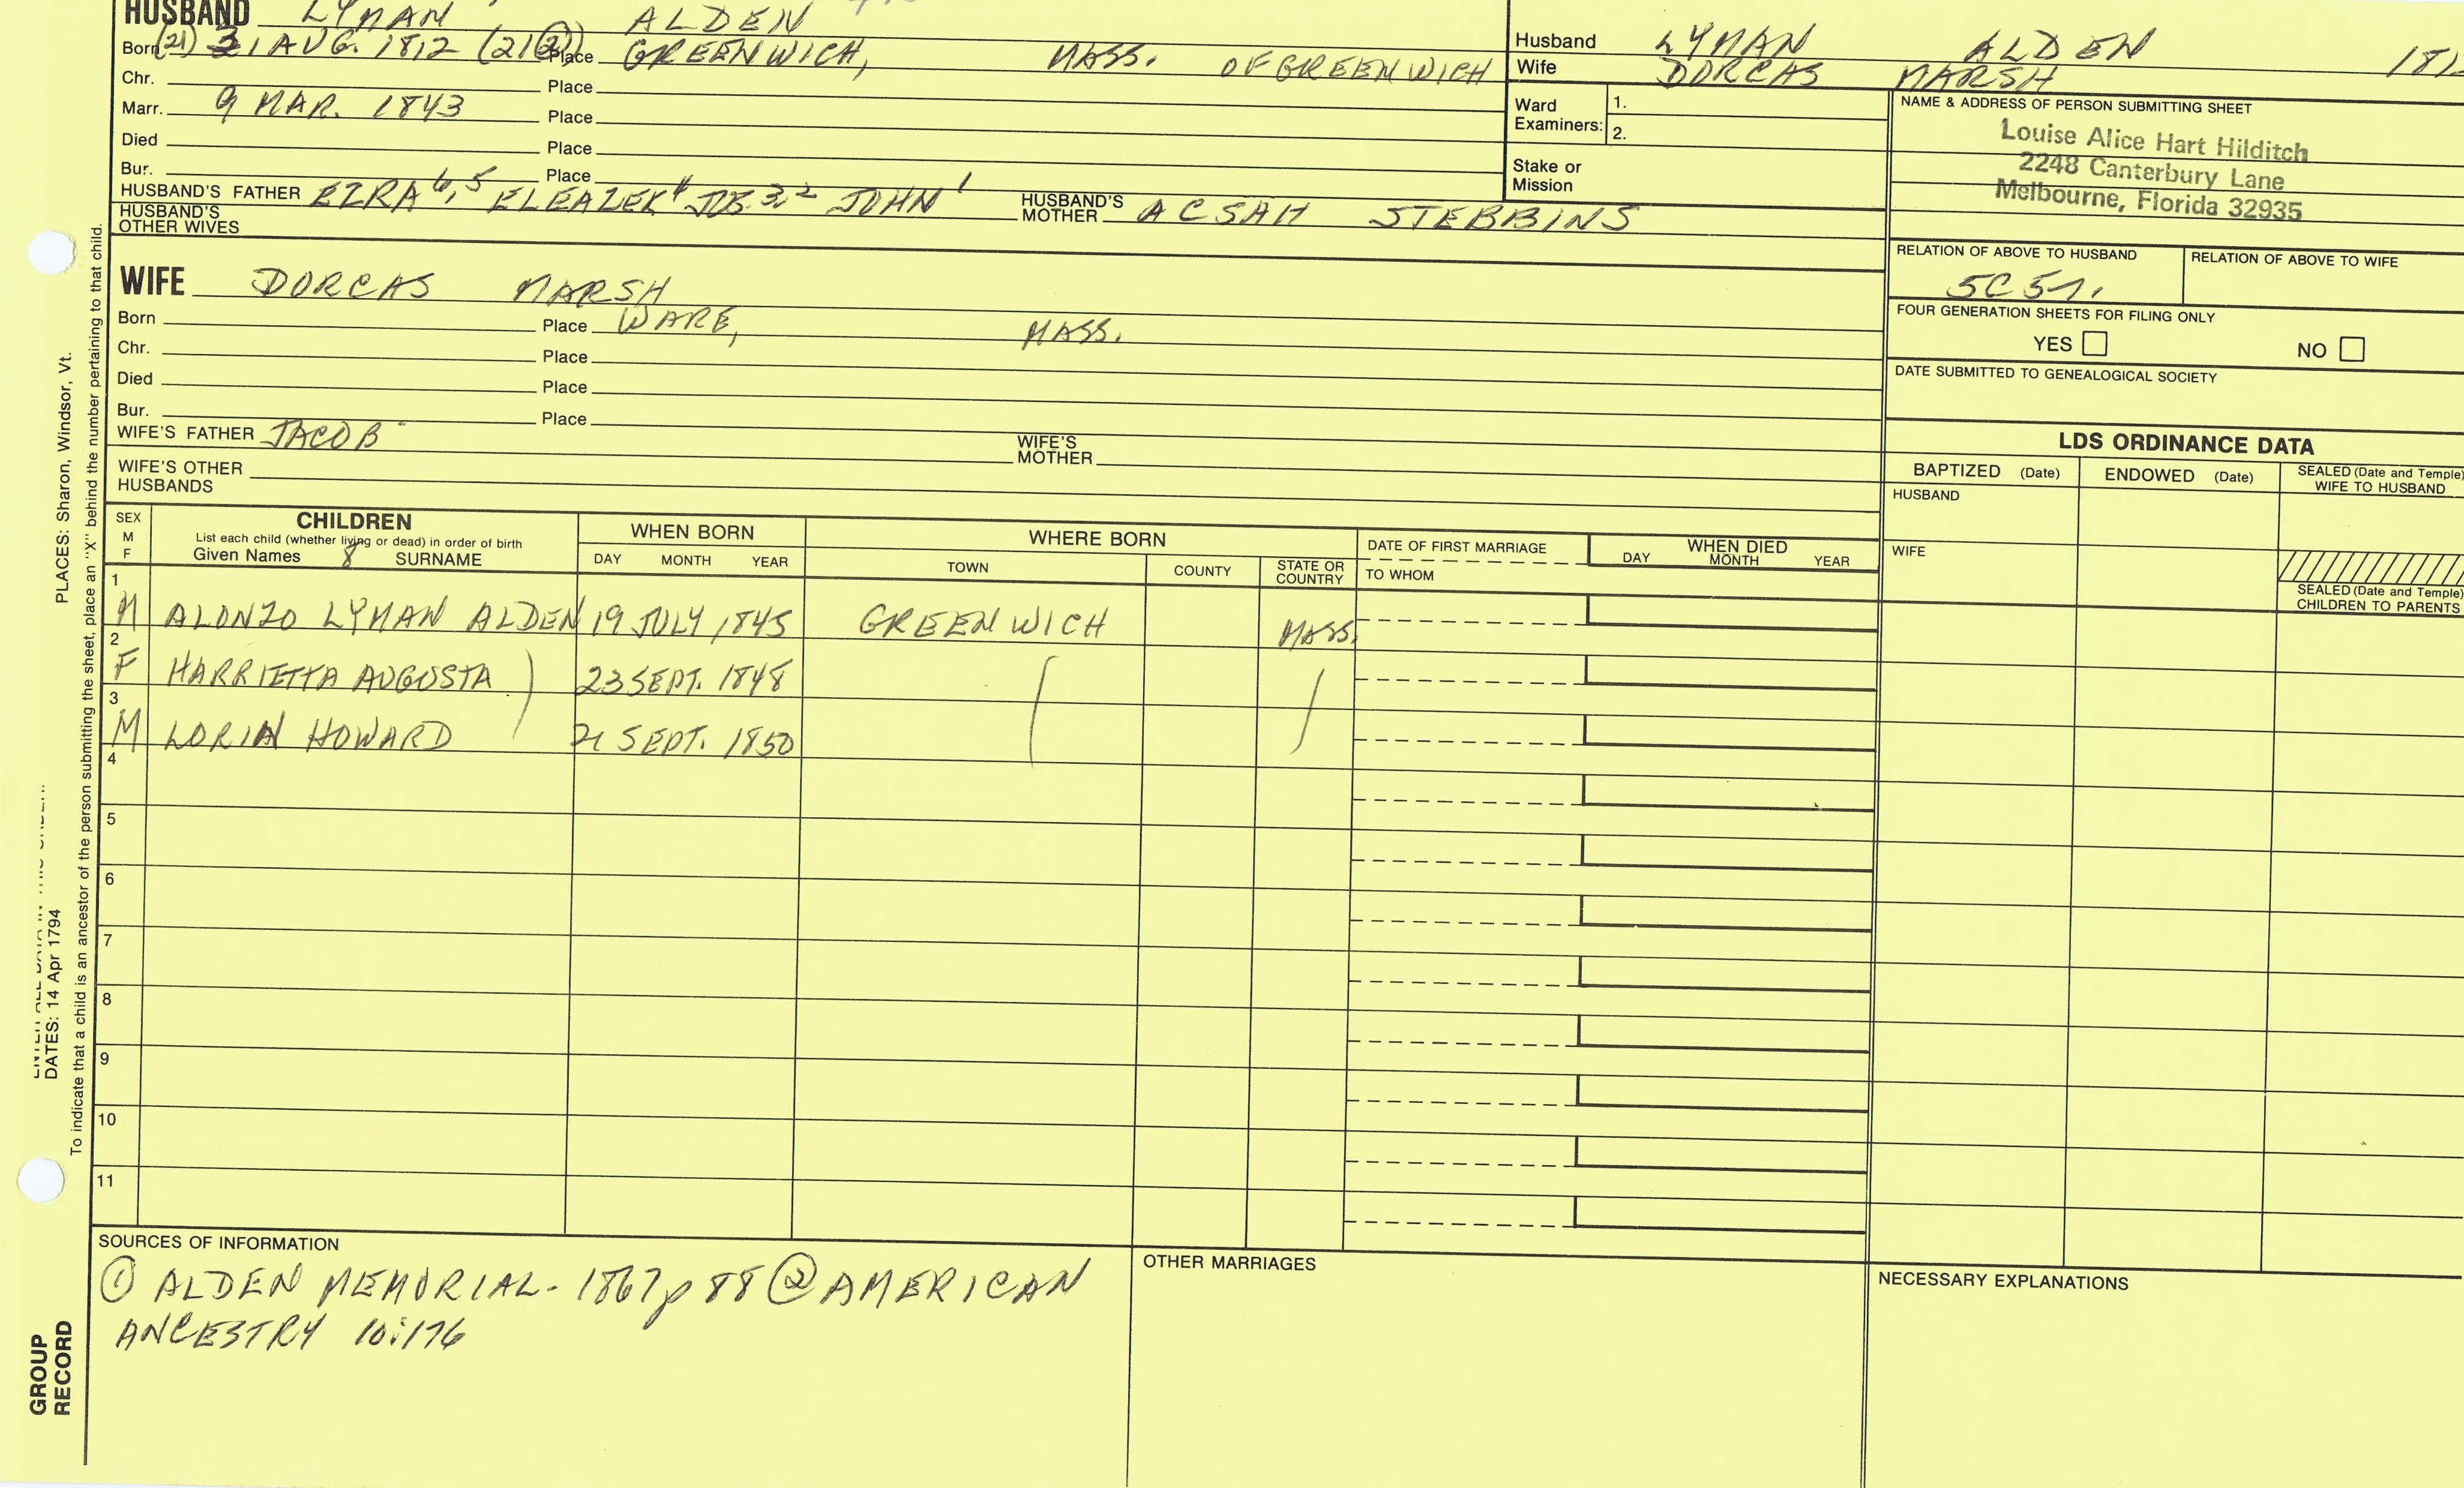 HUSBAND LYMAN ALDEN
Born (21) 31 AUG. 1812 (21②) Place GREENWICH, MASS. OF GREENWICH
Chr. Place
Marr. 9 MAR. 1843 Place
Died Place
Bur. Place
HUSBAND'S FATHER EZRA 6,5 ELEAZER 4 JOS. 3,2 JOHN 1 HUSBAND'S MOTHER ACSAH STEBBINS
HUSBAND'S OTHER WIVES
WIFE DORCAS MARSH
Born Place WARE, MASS.
Chr. Place
Died Place
Bur. Place
WIFE'S FATHER JACOB WIFE'S MOTHER
WIFE'S OTHER HUSBANDS
Husband LYMAN ALDEN 181
Wife DORCAS MARSH
Ward Examiners: 1.
2.
Stake or Mission
NAME & ADDRESS OF PERSON SUBMITTING SHEET
Louise Alice Hart Hilditch
2248 Canterbury Lane
Melbourne, Florida 32935
RELATION OF ABOVE TO HUSBAND RELATION OF ABOVE TO WIFE
5C 5
FOUR GENERATION SHEETS FOR FILING ONLY
YES NO
DATE SUBMITTED TO GENEALOGICAL SOCIETY
LDS ORDINANCE DATA
BAPTIZED (Date) ENDOWED (Date) SEALED (Date and Temple) WIFE TO HUSBAND
HUSBAND
WIFE
SEALED (Date and Temple) CHILDREN TO PARENTS
SEX M F
CHILDREN
List each child (whether living or dead) in order of birth
Given Names 8 SURNAME
WHEN BORN
DAY MONTH YEAR
WHERE BORN
TOWN COUNTY STATE OR COUNTRY
DATE OF FIRST MARRIAGE
TO WHOM
WHEN DIED
DAY MONTH YEAR
1 M ALONZO LYMAN ALDEN 19 JULY 1845 GREENWICH MASS.
2 F HARRIETTA AUGUSTA 23 SEPT. 1848
3 M LORIN HOWARD 21 SEPT. 1850
4
5
6
7
8
9
10
11
SOURCES OF INFORMATION
① ALDEN MEMORIAL - 1867 p 88 ② AMERICAN
ANCESTRY 10:176
OTHER MARRIAGES
NECESSARY EXPLANATIONS
PLACES: Sharon, Windsor, Vt.
DATES: 14 Apr 1794
To indicate that a child is an ancestor of the person submitting the sheet, place an "X" behind the number pertaining to that child.
GROUP
RECORD